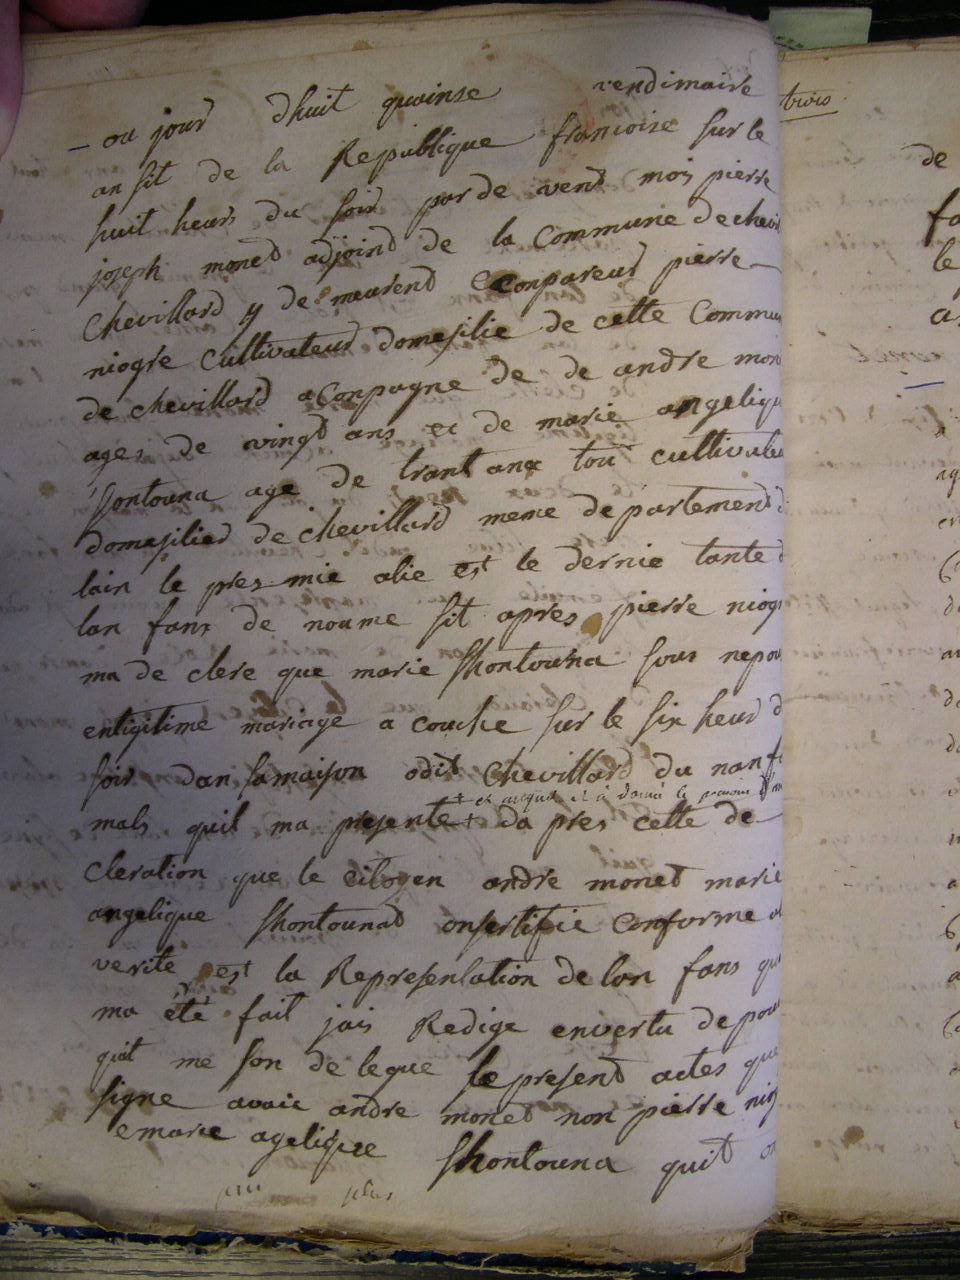 ou jour dhuit quinse vendimaire
an sit de la Republique francoise sur le
huit heurs du soir par de vent mois pierre
joseph monet adjoind de la Commune de chevi
Chevillard y de meurend Conpareud pierre
niogre Cultivateur domesilie de cette Commun
de chevillard aConpagne de de andre mone
ages de vingt ans et de marie angeliqu
Shontouna age de trant ans tou cultivateu
domesilied de chevillard meme departement d
lain le pres mie alie est le dernie tante d
lan fans de noume sit apres pierre niogr
ma de clere que marie Shontouna sous nepou
enligitime mariage a couche sur le six heur d
soir dan samaison odit Chevillard du nanfa
+ et auquel il à donné le prenom d'an
mals quil ma presente + da pres cette de
Cleration que le Citoyen andre monet marie
angelique Shontounad onsertifie Conforme a
verite est la Representation de lan fans qu
ma été fait jais Redige envertu de pou
quit me son de legue le present actes que
signe avaic andre monet non pierre niog
emarie agelique Shontouna quit on
plus
trois
de
le